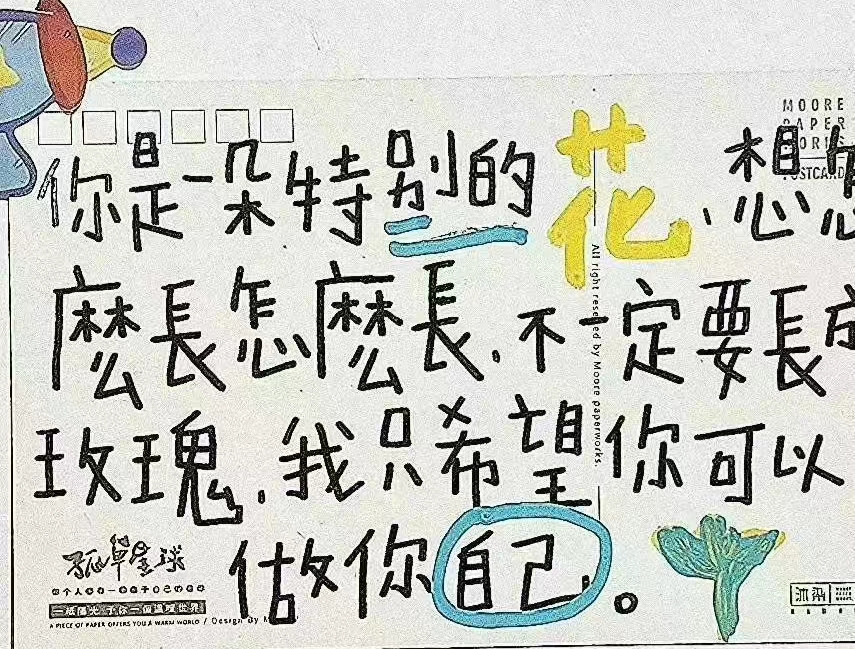 MOORE
PAPER
WORKS
POSTCARD
你是一朵特别的花，想怎
麼長怎麼長，不一定要長成
玫瑰，我只希望你可以
做你自己。
All right reserved by Moore paperworks.
孤單星球
A PIECE OF PAPER OFFERS YOU A WARM WORLD / Design By M